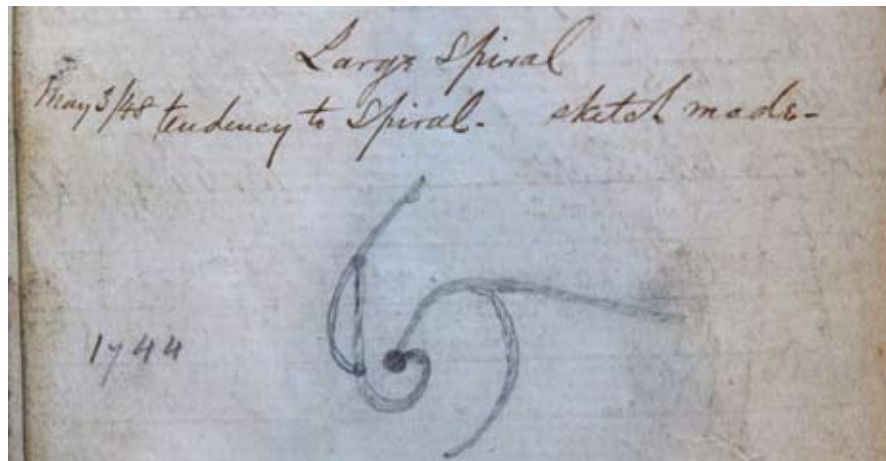 Large Spiral
May 3/48 tendency to Spiral- sketch made-
1744